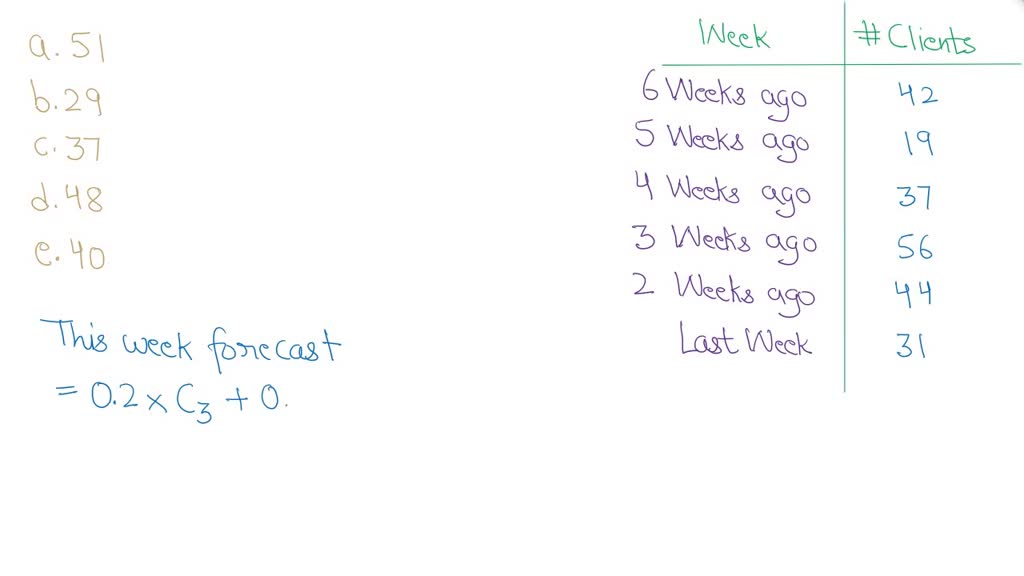 a. 51
b. 29
c. 37
d. 48
e. 40
This week forecast
= 0.2 x C3 + 0.
Week # Clients
6 Weeks ago 42
5 Weeks ago 19
4 Weeks ago 37
3 Weeks ago 56
2 Weeks ago 44
Last Week 31